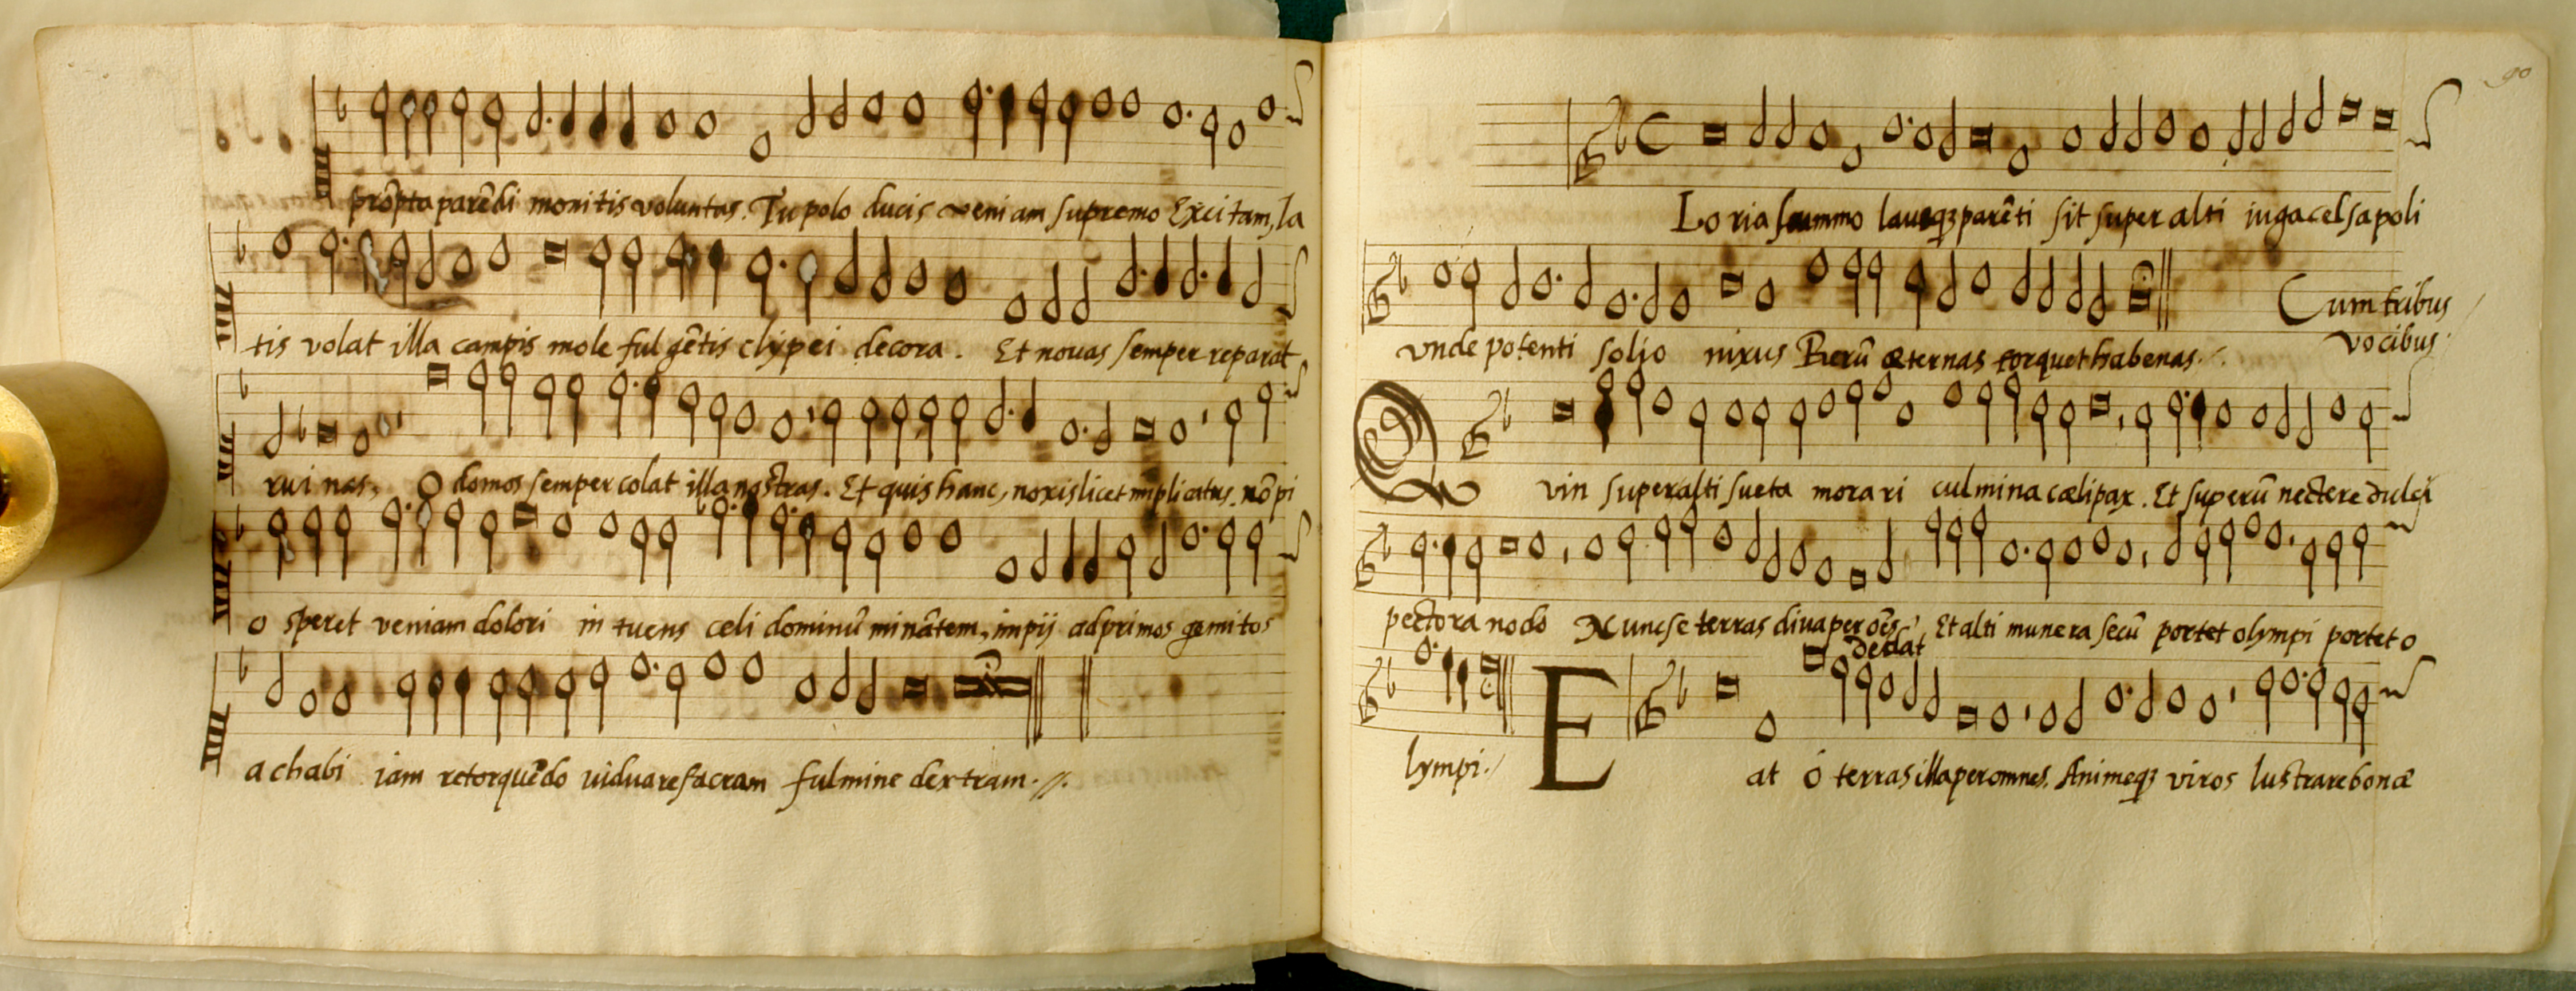 prõpta parẽdi monitis voluntas. Tu polo ducis veniam supremo Excitam, la
tis volat illa campis mole fulgẽtis clypei decora. Et novas semper reparat
ruinas, O domos semper colat illa nostras. Et quis hanc, noxis licet implicatus, nõ pi
o speret veniam dolori in tuens celi dominũ minãtem, impij ad primos gemitos
achabi iam retorquẽdo viduare sacram fulmine dextram.
90
Loria summo lausq3 parẽti sit super alti iuga celsa poli
vnde potenti solio nixus Rerũ æternas torquet habenas.
Cum tribus
vocibus
Q vin super alti sueta morari culmina cæli pax. Et superũ nectere dulci
pectora nodo Nunc se terras diva per oẽs, Et alti munera secũ portet olympi portet o
dedat
lympi.
E at ó terras illa per omnes. Animeq3 viros lustrare bonæ